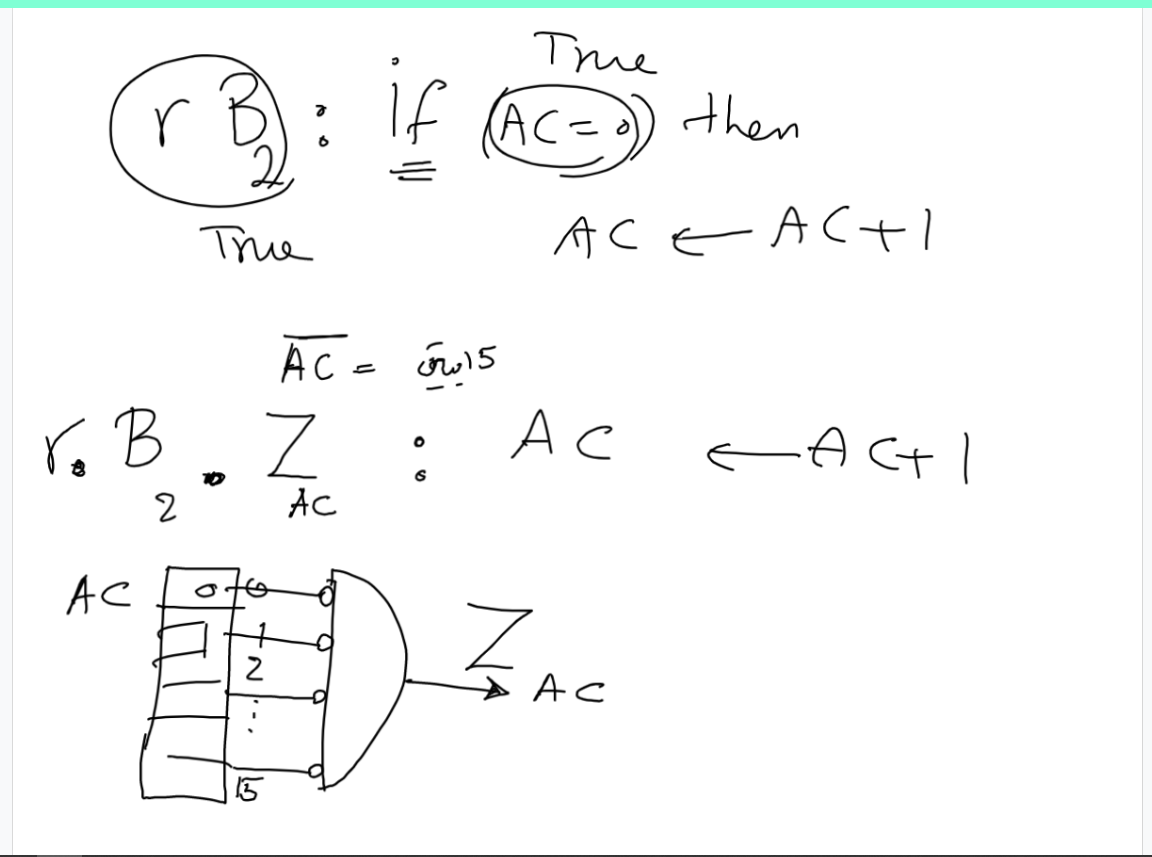 True
r B2 : if (AC=0) then
True
AC ← AC+1
A̅C̅ = 15
r. B2 . ZAC : AC ← AC+1
AC 0 0
1
2
⋮
15
ZAC